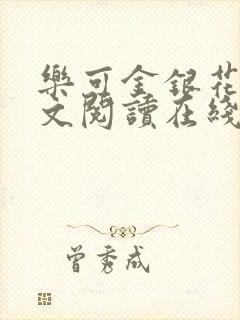 樂可金銀花
文閱讀在綫
曾秀成